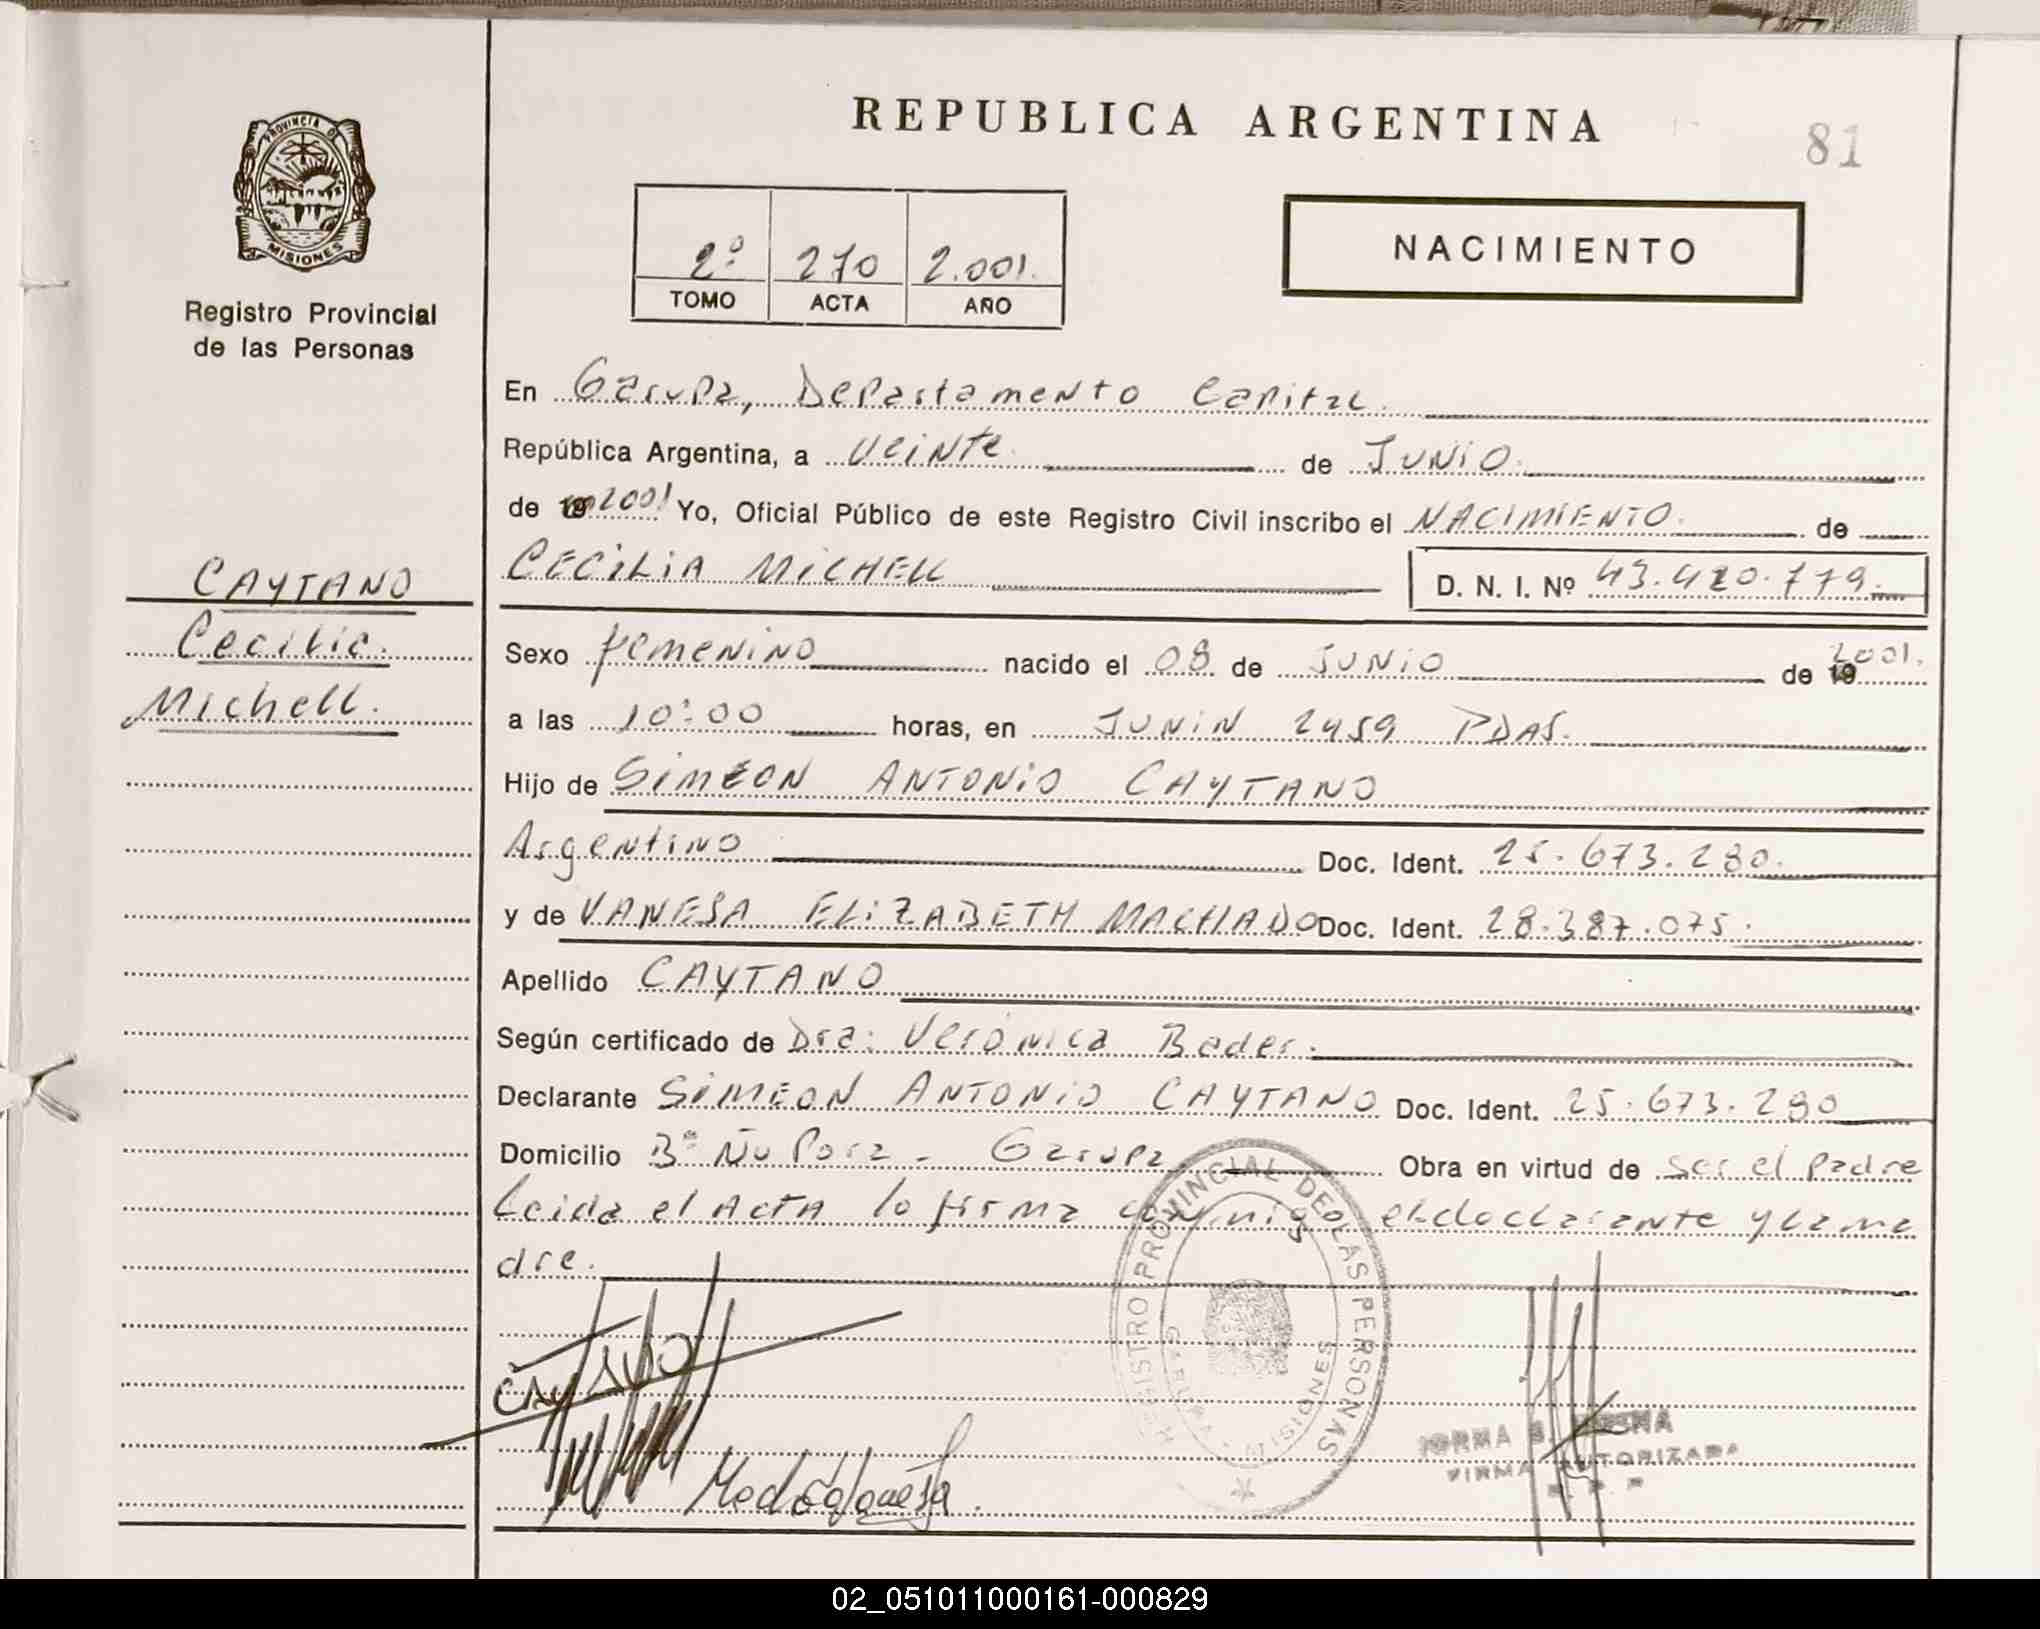 REPUBLICA ARGENTINA
81
PROVINCIA DE
MISIONES
Registro Provincial
de las Personas
2º 270 2.001.
TOMO ACTA AÑO
NACIMIENTO
En Garupa, Departamento Capital.
República Argentina, a veinte de Junio.
de 19 2001 Yo, Oficial Público de este Registro Civil inscribo el NACIMIENTO. de
CECILIA MICHELL D. N. I. Nº 43.420.779.
CAYTANO
Cecilia
Michell.
Sexo femenino nacido el 08 de JUNIO de 19 2001.
a las 10:00 horas, en JUNIN 2459 PDAS.
Hijo de SIMEON ANTONIO CAYTANO
Argentino Doc. Ident. 25.673.280.
y de VANESA ELIZABETH MACHADO Doc. Ident. 28.387.075.
Apellido CAYTANO
Según certificado de Dra: Verónica Bader.
Declarante SIMEON ANTONIO CAYTANO Doc. Ident. 25.673.280
Domicilio Bº Ñu Pora - Garupa Obra en virtud de ser el padre
Leida el ActA lo firma conmigo el declarante y la ma
dre.
REGISTRO PROVINCIAL DE LAS PERSONAS
MISIONES
CAYTANO
Machado Vanesa.
FIRMA AUTORIZADA
02_051011000161-000829